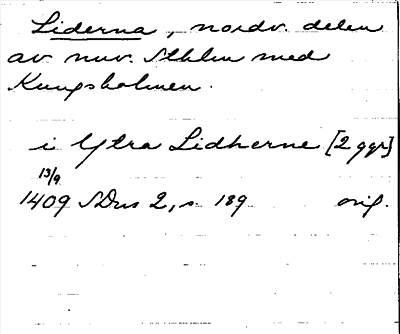 Liderna, nordv. delen
av nuv. Sthlm med
Kungsholmen.
i Ytra Lidherne [2 ggr]
13/9
1409 SDns 2, s. 189 orig.